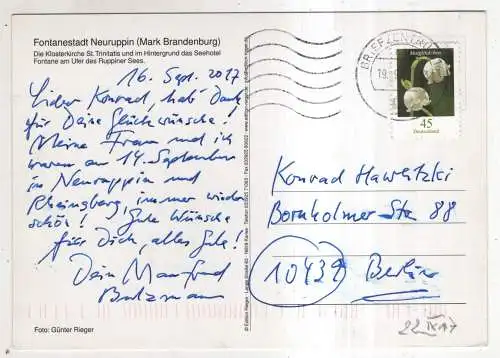 Fontanestadt Neuruppin (Mark Brandenburg)
Die Klosterkirche St. Trinitatis und im Hintergrund das Seehotel
Fontane am Ufer des Ruppiner Sees.
16. Sept. 2017
Lieber Konrad, hab Dank
für Deine Glückwünsche!
Meine Frau und ich
waren am 14. September
in Neuruppin und
Rheinsberg, immer wieder
schön! Gute Wünsche
für Dich, alles Gute!
Dein Manfred
Foto: Günter Rieger
BRIEFZENTRUM
Maiglöckchen
45
Deutschland
Konrad Hawlitzki
Bornholmer Str 88
10439 Berlin
22 IX 17